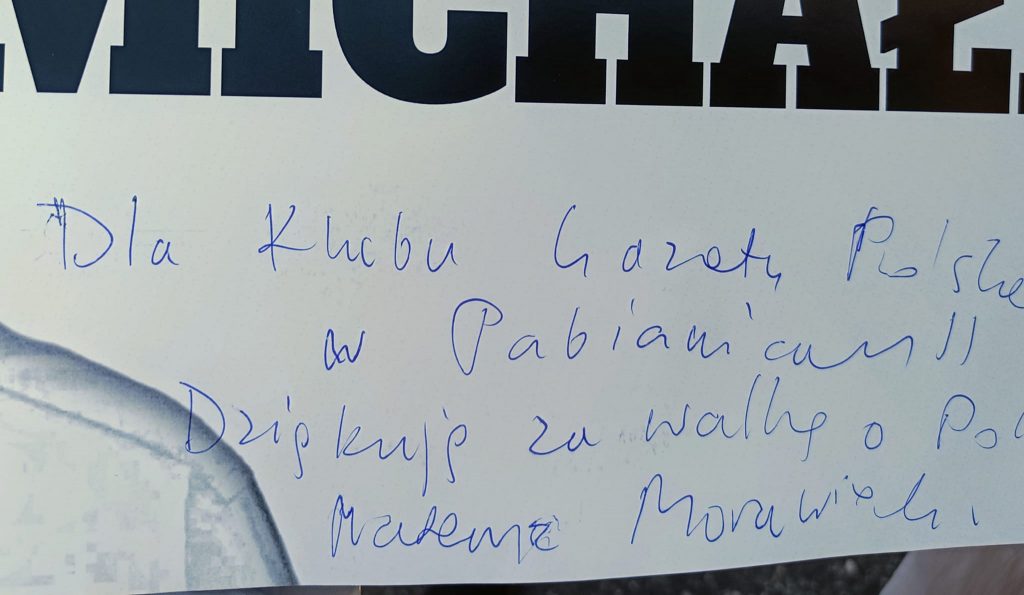 MICHAŁ
Dla Klubu Gazety Polskie
w Pabianicach!!
Dziękuję za walkę o Pol
Mateusz Morawiecki